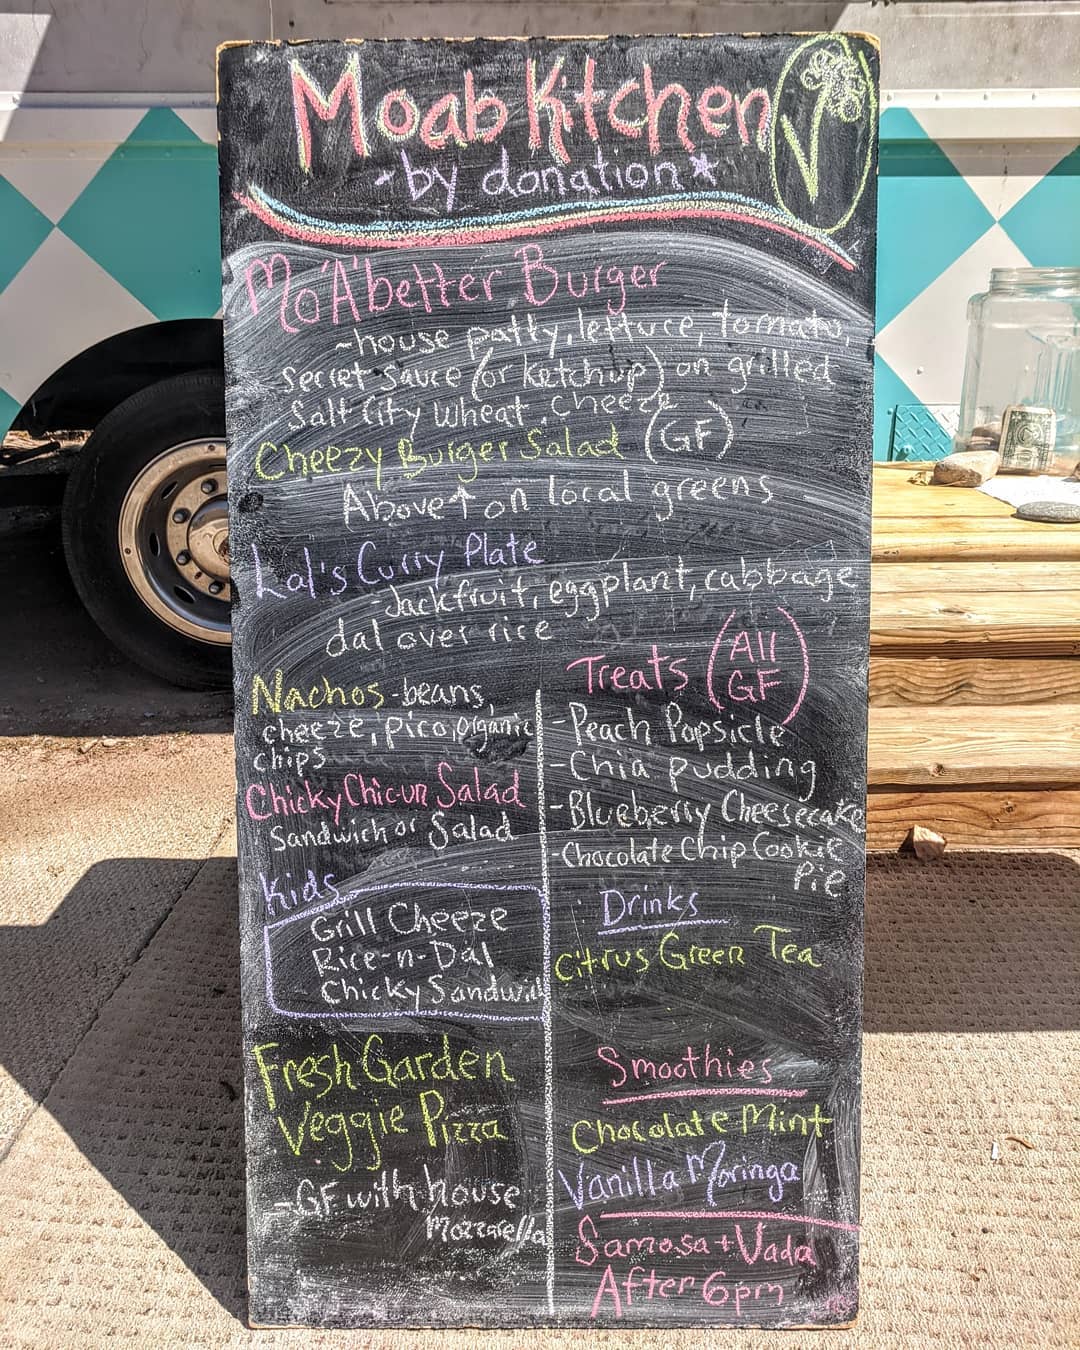 Moab Kitchen
-by donation*
Mo'A'better Burger
~house patty, lettuce, tomato,
Secret sauce (or ketchup) on grilled
Salt City Wheat, cheeze
Cheezy Burger Salad (GF)
Above↑ on local greens
Lal's Curry Plate
-Jackfruit, eggplant, cabbage
dal over rice
Nachos -beans,
cheeze, pico, organic
chips
Chicky Chicun Salad
Sandwich or Salad
Kids
Grill Cheeze
Rice-n-Dal
Chicky Sandwich
Fresh Garden
Veggie Pizza
-GF with house
Mozzarella
Treats (All
GF)
-Peach Popsicle
-Chia pudding
-Blueberry Cheesecake
-Chocolate Chip Cookie
Pie
Drinks
Citrus Green Tea
Smoothies
Chocolate Mint
Vanilla Moringa
Samosa + Vada
After 6pm